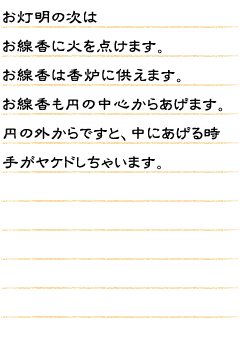 お灯明の次は
お線香に火を点けます。
お線香は香炉に供えます。
お線香も円の中心からあげます。
円の外からですと、中にあげる時
手がヤケドしちゃいます。